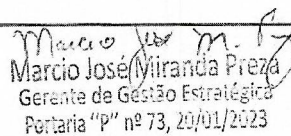 Marcio José M. P
Marcio José Miranda Preza
Gerente de Gestão Estratégica
Portaria "P" nº 73, 20/01/2023